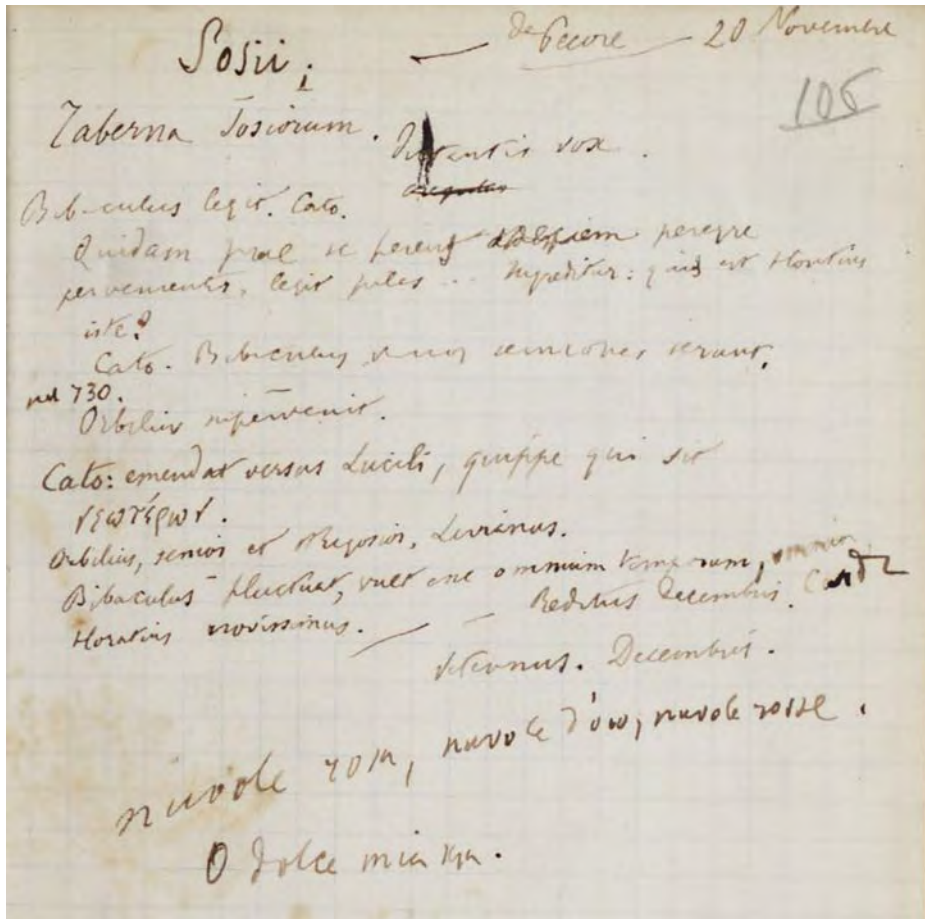 Sosii; — de Pecore — 20 Novembre
106
Taberna Sosiorum.
Dictantis vox.
Bibaculus legit. Cato.
Quidam prae se ferens speciem peregre
pervenientis, legit pilas... Ingreditur: quis est Horatius
iste?
Cato. Bibaculus sermones serunt.
730.
Orbilius supervenit.
Cato: emendat versus Lucili, quippe qui sit
νεωτέρων.
Orbilius, senior et Livianus.
Bibaculus fluctuat, vult esse omnium temporum, omnium
Horatius novissimus. — — Reditus Decembris.
Veternus. Decembris.
nuvole rosa, nuvole d'oro, nuvole rosse.
O dolce mia